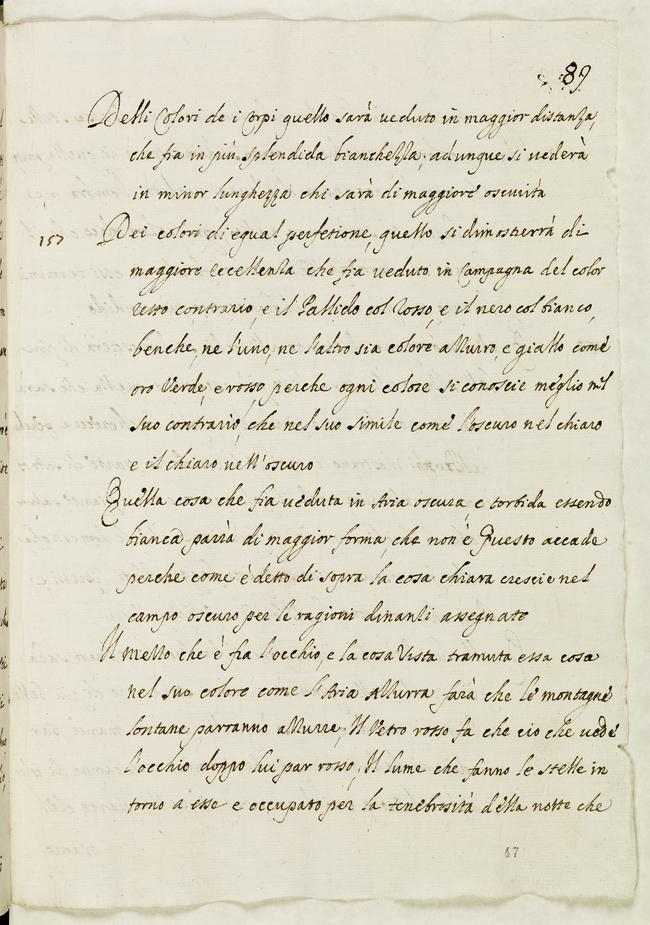 89
Delli Colori de i Corpi quello sarà veduto in maggior distanza,
che fia in più splendida bianchezza, adunque si vederà
in minor lunghezza chi sarà di maggiore oscurità
157
Dei colori di egual perfetione, quello si dimosterrà di
maggiore eccellenza che fia veduto in Campagna del color
retto contrario, e il Pallido col rosso, e il nero col bianco,
benche, ne l'uno, ne l'altro sia colore azzurro, e giallo come
oro Verde, e rosso, perche ogni colore si conoscie meglio nel
suo contrario, che nel suo simile come l'oscuro nel chiaro
e il chiaro nell'oscuro
Quella cosa che fia veduta in Aria oscura, e torbida essendo
bianca parrà di maggior forma, che non è Questo accade
perche come è detto di sopra la cosa chiara crescie nel
campo oscuro per le ragioni dinanzi assegnate
Il mezzo che è fra l'occhio, e la cosa Vista tramuta essa cosa
nel suo colore come l'Aria Azzurra farà che le montagne
lontane parranno azzurre, Il Vetro rosso fa che ciò che vede
l'occhio doppo lui par rosso, Il lume che fanno le stelle in
torno a esse e occupato per la tenebrosità della notte che
47